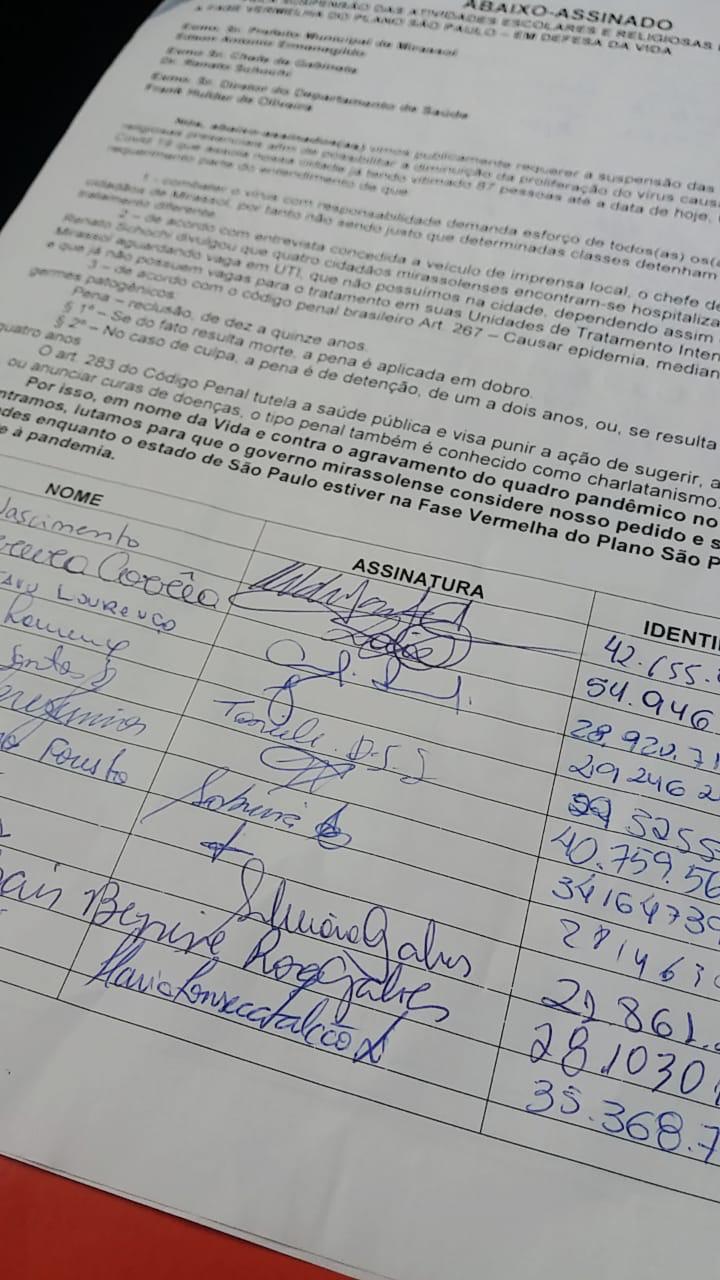 ABAIXO-ASSINADO
SUSPENSÃO DAS ATIVIDADES ESCOLARES E RELIGIOSAS
A FASE VERMELHA DO PLANO SÃO PAULO – EM DEFESA DA VIDA
Exmo. Sr. Prefeito Municipal de Mirassol
Edson Antonio Ermenegildo
Exmo Sr. Chefe de Gabinete
Dr. Renato Schochi
Exmo. Sr. Diretor do Departamento de Saúde
Frank Hulder de Oliveira
Nós, abaixo-assinados(as) vimos publicamente requerer a suspensão das
religiosas presenciais afim de possibilitar a diminuição da proliferação do vírus caus
Covid 19 que assola nossa cidade já tendo vitimado 87 pessoas até a data de hoje,
requerimento parte do entendimento de que
1 - combater o vírus com responsabilidade demanda esforço de todos(as) os(
cidadãos de Mirassol, por tanto não sendo justo que determinadas classes detenham
tratamento diferente.
2 – de acordo com entrevista concedida a veículo de imprensa local, o chefe de
Renato Schochi divulgou que quatro cidadãos mirassolenses encontram-se hospitaliza
Mirassol aguardando vaga em UTI, que não possuímos na cidade, dependendo assim
e que já não possuem vagas para o tratamento em suas Unidades de Tratamento Inten
3 – de acordo com o código penal brasileiro Art. 267 – Causar epidemia, median
germes patogênicos.
Pena – reclusão, de dez a quinze anos.
§ 1º – Se do fato resulta morte, a pena é aplicada em dobro.
§ 2º – No caso de culpa, a pena é de detenção, de um a dois anos, ou, se resulta
quatro anos
O art. 283 do Código Penal tutela a saúde pública e visa punir a ação de sugerir, a
ou anunciar curas de doenças, o tipo penal também é conhecido como charlatanismo.
Por isso, em nome da Vida e contra o agravamento do quadro pandêmico no
ntramos, lutamos para que o governo mirassolense considere nosso pedido e s
des enquanto o estado de São Paulo estiver na Fase Vermelha do Plano São P
e à pandemia.
NOME ASSINATURA IDENTI
Nascimento 42.655.
Corrêa 54.946
LOURENÇO 28.920.71
29 246 2
Santos Tamile D.S.S 5255
40.759.56
Fausto Sabrina 34164739
281463
Silmara Galves 29 861.
Benine Rog Galves 28.1030
Flavia Fonseca Falcão 35.368.7